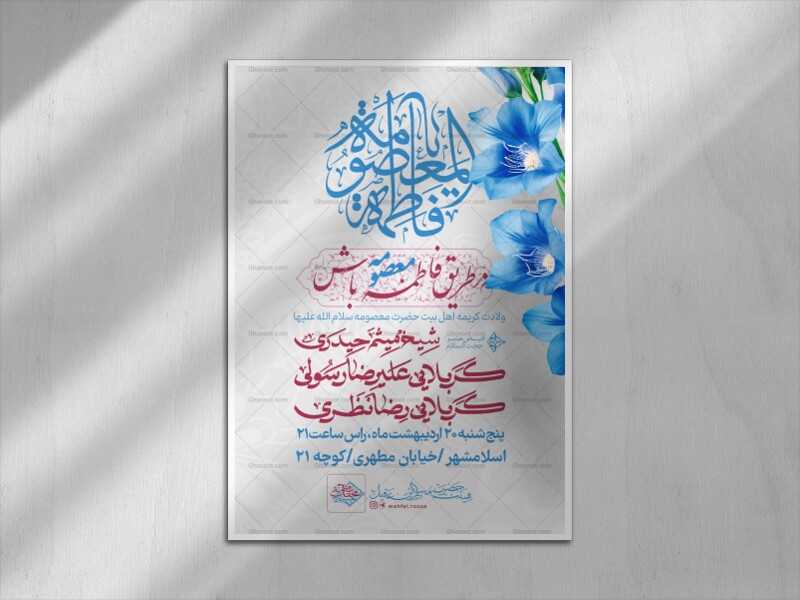 یا فاطمة المعصومة
در طریق فاطمه معصومه باش
ولادت کریمه اهل بیت حضرت معصومه سلام الله علیها
فیض منبر
حجت‌الاسلام
شیخ میثم حیدری
کربلایی علیرضا رسولی
کربلایی رضا نظری
پنج شنبه ۲۰ اردیبهشت ماه، راس ساعت ۲۱
اسلامشهر/خیابان مطهری/کوچه ۲۱
Ghonoot.com